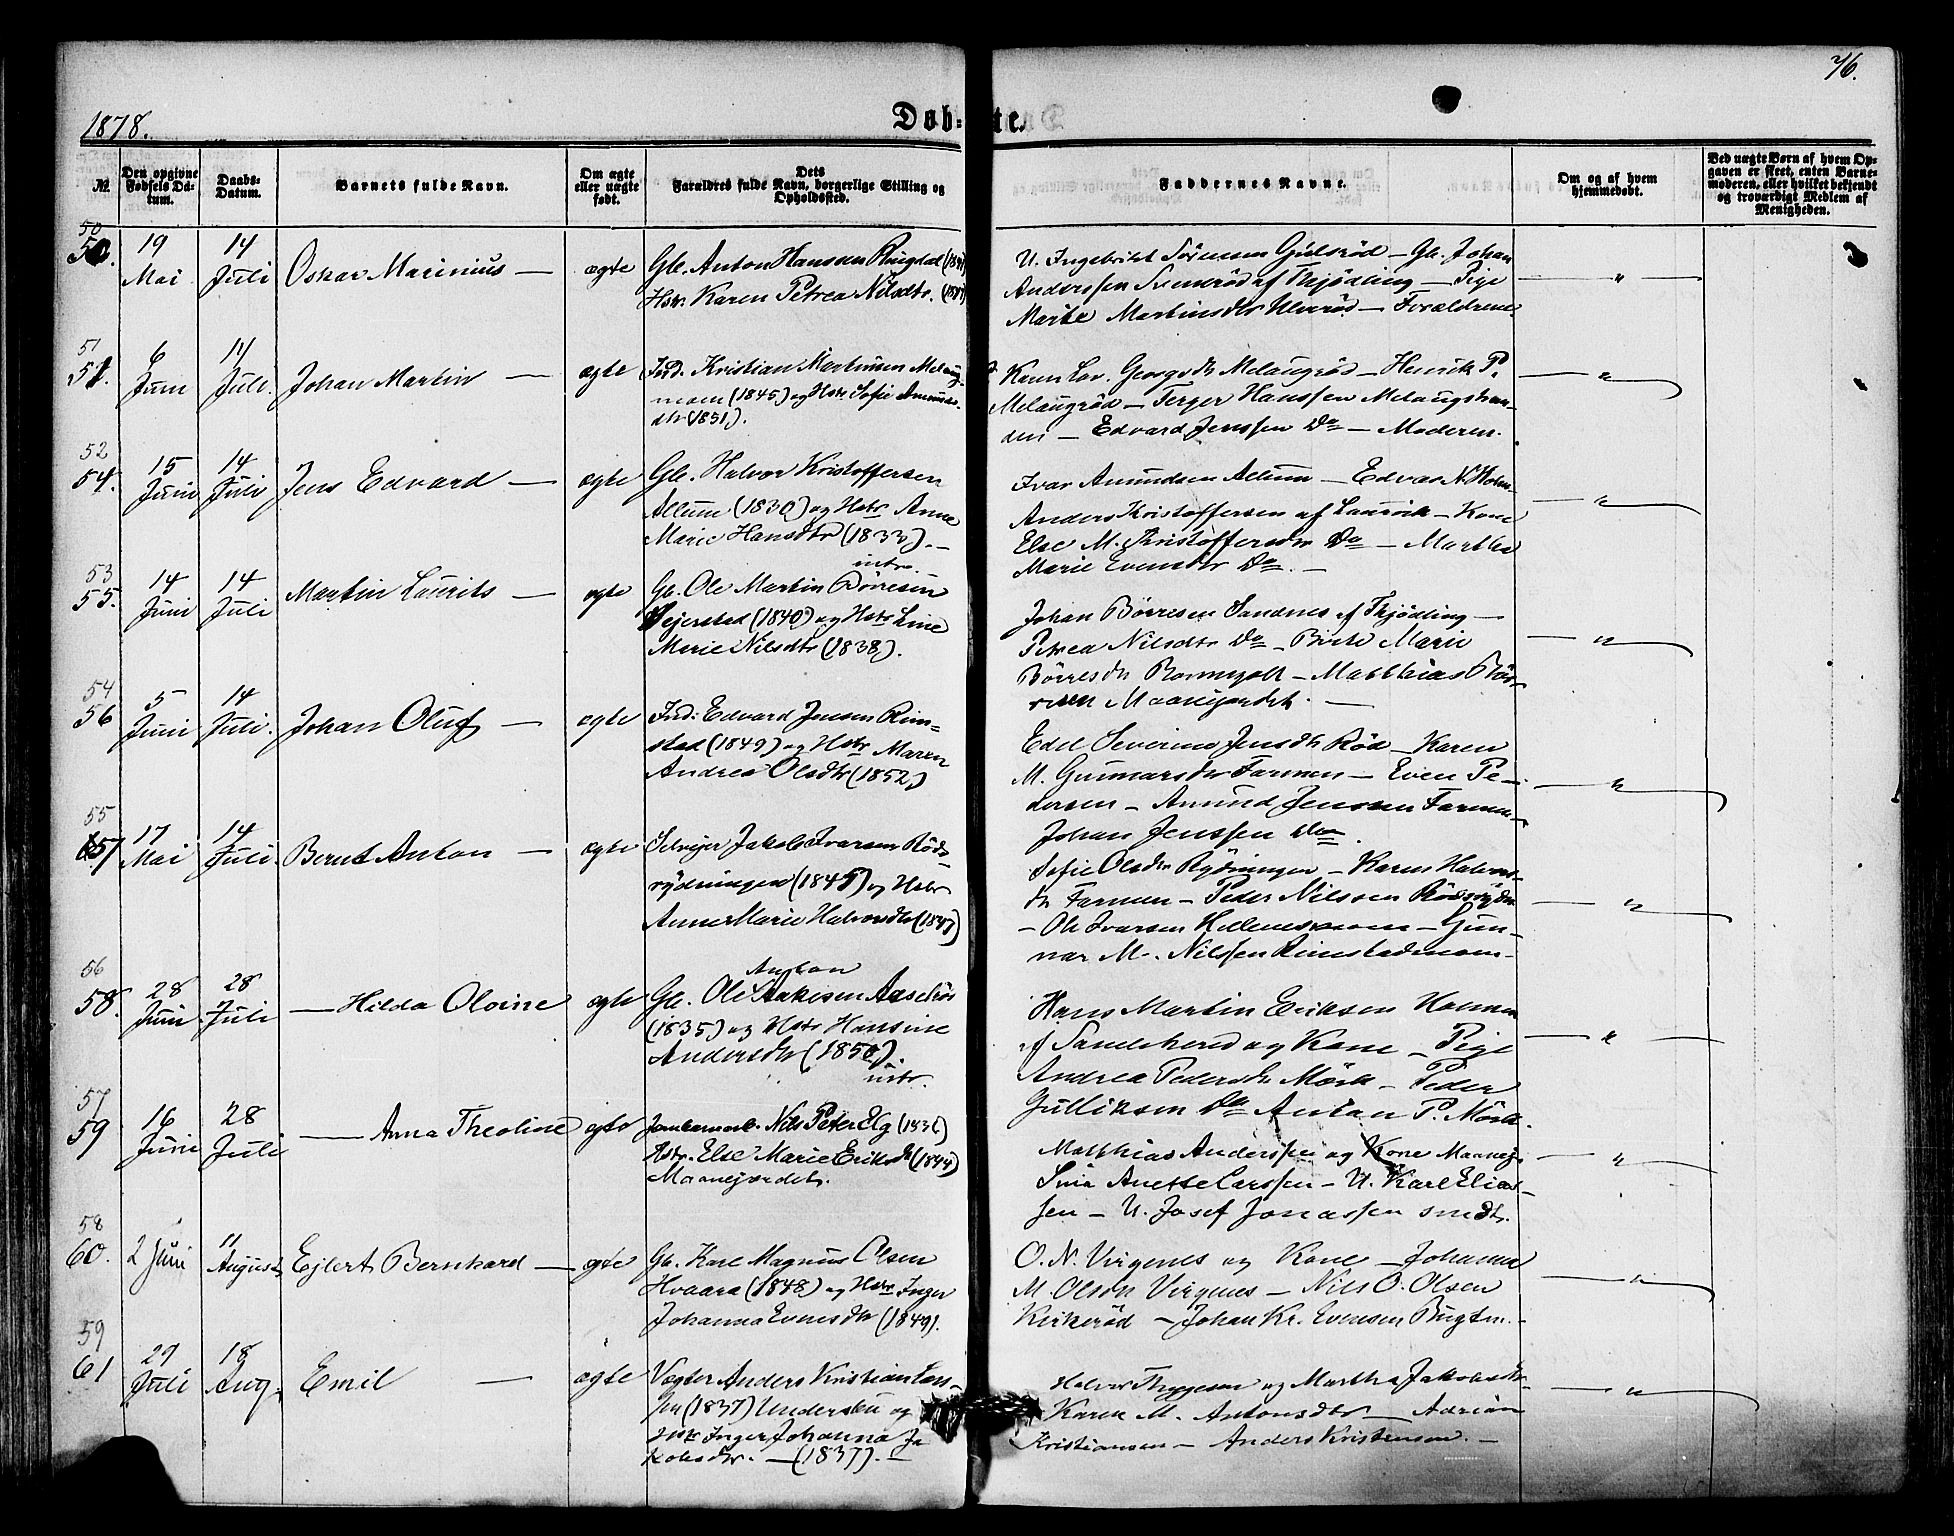 1878.
Døb-te.
76.
No.
Den opgivne Fødsels Datum.
Daabs-Datum.
Barnets fulde Navn.
Om ægte eller uægte født.
Dets Forældres fulde Navn, borgerlige Stilling og Opholdssted.
Faddernes Navne.
Om og af hvem hjemmedøbt.
Ved uægte Børn af hvem Opgaven er skeet, enten Barnemoderen, eller hvilket bekjendt og troværdigt Medlem af Menigheden.
50
19 Mai
14 Juli
Oskar Marinius —
ægte
Gb. Anton Hansen Ringdal
Hstr. Karen Petrea Nilsdtr.
U. Ingebrikt Sörensen Gulsröd — Gb. Johan
Anderssen Svenröd af Thjödling — Pige
Marte Martinsdtr Ulveröd — Forældrene.
51
6 Juni
14 Juli.
Johan Martin —
ægte
Ind. Kristian Martinsen Melaug-
moen (1845) og Hstr Sofie Amunds-
dtr (1851).
Karen Lov. Georgsdtr Melaugröd — Henrik P.
Melaugröd — Terjer Hanssen Melaugstran-
den — Edvard Jenssen Do — Moderen.
52
54.
15 Juni
14 Juli
Jens Edvard —
ægte
Gb. Halvor Kristoffersen
Allum (1830) og Hstr Anne
Marie Hansdtr (1833). —
intr.
Ivar Amundsen Allum — Edvar N. Holm-
Anders Kristoffersen af Laurvik — Kone
Else M. Kristoffersdtr Do — Marthe
Marie Evensdtr Do. —
53
55.
14 Juni
14 Juli
Martin Laurits —
ægte
Gb. Ole Martin Börresen
Vejerstad (1840) og Hstr Line
Marie Nilsdtr (1838).
Johan Börresen Sandnes af Thjödling —
Petrea Nilsdtr Do — Birte Marie
Börresdtr — Matthias Bör-
resen Maanejordet. —
54
56
5 Juni
14 Juli.
Johan Oluf —
ægte
Ind: Edvard Jensen Rim-
stad (1849) og Hstr Maren
Andrea Olsdtr (1852)
Edel Severine Jensdtr Röd — Karen
M. Gunnarsdtr Farmen — Even Pe-
dersen — Amund Jenssen Farmen
Johan Jenssen Do.
55
57
17 Mai
14 Juli.
Bernt Anton —
ægte
Selvejer Jakob Ivarsen Röds-
rydningen (1845) og Hstr
Anne Marie Halvorsdtr (1847)
Sofie Olsdtr Rydningen — Karen Halvors-
dtr Farmen — Peder Nilssen Rödsrydn.
— Ole Ivarsen Hellenesmoen — Gun-
nar M. Nilssen Rimstadmoen —
56
58.
28 Juni
28 Juli
— Hilda Olvine
ægte
Anton
Gb. Ole Isaksen
(1835) og Hstr Hansine
Andersdtr (1850).
intr.
Hans Martin Eriksen Holmen
af Sandeherred og Kone — Pige
Andrea Pedersdtr Mörk — Peder
Gulliksen Do Anton P. Mörk.
57
59
16 Juni
28 Juli
— Anna Theoline
ægte
Jernbanearb. Nils Peter Elg
Hstr. Else Marie Eriksdtr (1844)
Maanejordet.
Matthias Anderssen og Kone Maanej.
Sina Anette Larssen — U. Karl Elias-
sen — U. Josef Jonassen smedt.
58
60.
2 Juni
11 August
Ejlert Bernhard —
ægte
Gb. Karl Magnus Olsen
Hvaara (1848) og Hstr Inger
Johanna Evensdtr (1849).
O. N. Virgenes og Kone — Johanna
M. Olsdtr Virgenes — Nils O. Olsen
Kirkeröd — Johan Kr. Evensen Bugten.
59
61
27 Juli
18 Aug.
Emil —
ægte
Vogter Anders Kristian Lars-
sen (1837) Undersbu og
Hstr Inger Johanna Ja-
kobsdtr. — (1837). —
Halvor Thygesen og Martha Jakobsdtr.
Karen M. Antonsdtr — Adrian
Kristiansen — Anders Kristensen. —